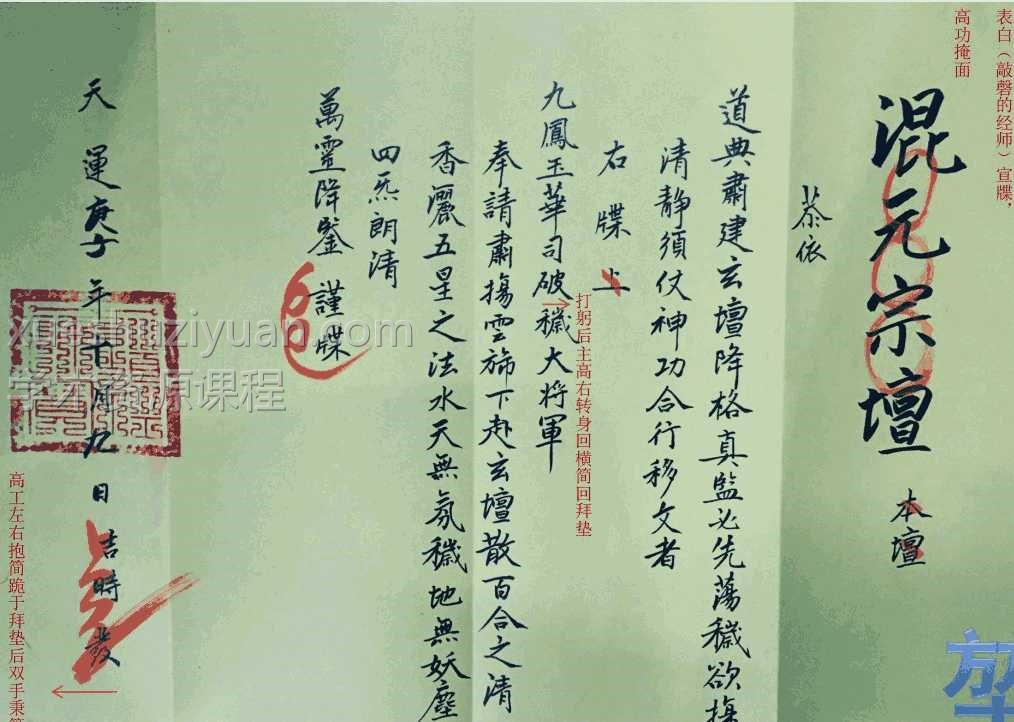 表白（敲磬的经师）宣牒，
高功掩面
混元宗壇 本壇
恭依
道典肅建玄壇降格真監必先蕩穢欲
清静須仗神功合行移文者
右牒上
打躬后主高右转身回横简回拜垫
九鳳玉華司破穢大将軍
奉請肅揚雲斾下赴玄壇散百合之清
香灑五星之法水天無氛穢地無妖塵
四炁朗清
萬靈降鑒 謹牒
天運庚子年十月九日吉時發
高工左右抱简跪于拜垫后双手秉简
xueshuziyuan.com
学术资源课程